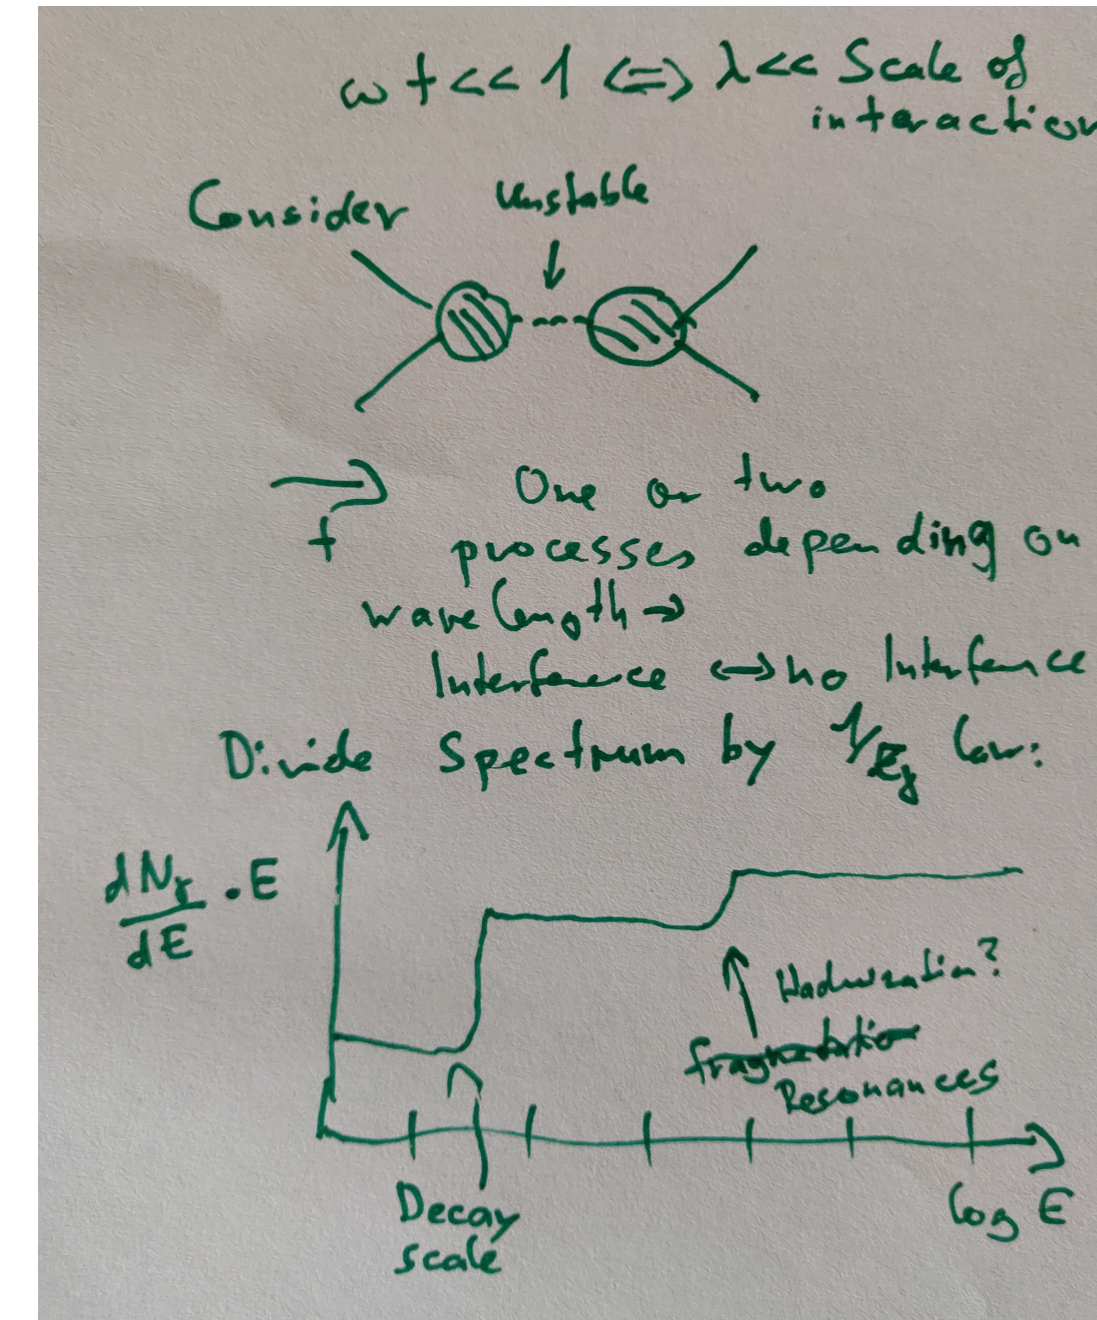 ωt << 1 <=> λ << Scale of
interaction
Consider unstable
t
One or two
processes depending on
wavelength →
Interference ↔ no Interfence
Divide Spectrum by 1/Eγ law:
dNγ/dE · E
Hadronization?
fragmentation
Resonances
Decay
scale
log E